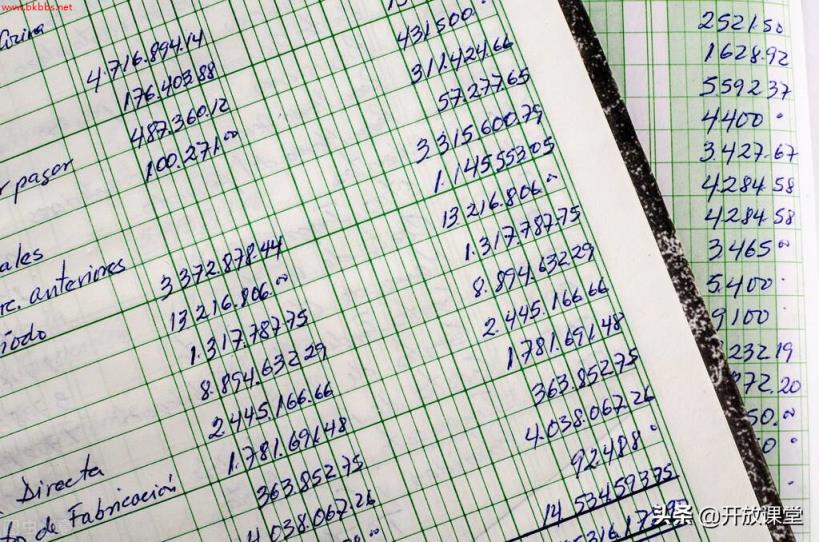 www.bkbbs.net
4.716.894.14
176.403.88
487.360.12
100.271.00
r pagar
ales
anteriores
íodo
3 372.878.44
13 216.806.00
1.317.787.75
8.894.632.29
2445.166.66
1.781.691.48
363.852.75
4 038.067.26
Directa
de Fabricación
431500
311.424.66
57.277.65
3 315.600.79
1.145.553.05
13 216.806.00
1.317.787.75
8.894.632.29
2.445.166.66
1.781.691.48
363.852.75
4.038.067.26
92.488
14 534.593.75
2521.50
1628.92
5592.37
4400
3.427.67
4284.58
4284.58
3465.00
5.400
9100
232.19
72.20
50.00
头条 @开放课堂